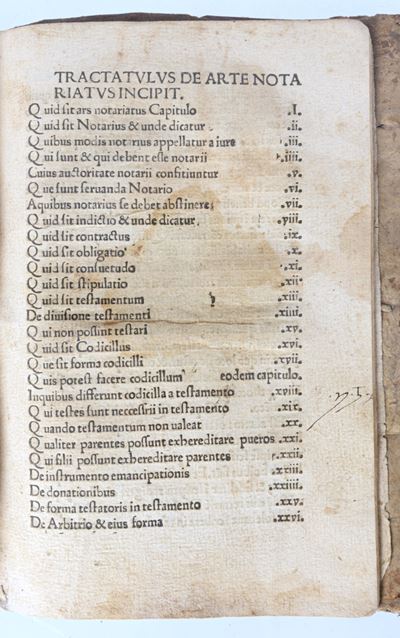 TRACTATVLVS DE ARTE NOTA
RIATVS INCIPIT.
Quid sit ars notariatus Capitulo .I.
Quid sit Notarius & unde dicatur .ii.
Quibus modis notarius appellatur a iure .iii.
Qui sunt & qui debent esse notarii .iiii.
Cuius auctoritate notarii constituntur .v.
Que sunt seruanda Notario .vi.
Aquibus notarius se debet abstinere .vii.
Quid sit indictio & unde dicatur .viii.
Quid sit contractus .ix.
Quid sit obligatio .x.
Quid sit consuetudo .xi.
Quid sit stipulatio .xii.
Quid sit testamentum .xiii.
De diuisione testamenti .xiiii.
Qui non possint testari .xv.
Quid sit Codicillus .xvi.
Que sit forma codicilli .xvii.
Quis potest facere codicillum eodem capitulo.
Inquibus differunt codicilla a testamento .xviii.
Qui testes sunt neccessrii in testamento .xix.
Quando testamentum non ualeat .xx.
Qualiter parentes possunt exhereditare pueros .xxi.
Qui filii possunt exhereditare parentes .xxii.
De instrumento emancipationis .xxiii.
De donationibus .xxiiii.
De forma testatoris in testamento .xxv.
De Arbitrio & eius forma .xxvi.